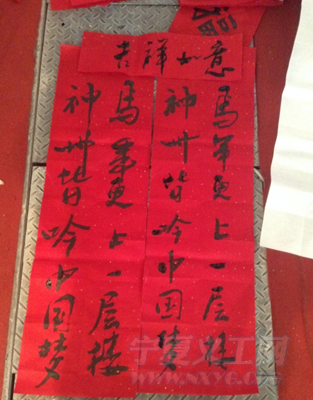 吉祥如意
马年更上一层楼
神州皆吟中国梦
马年更上一层楼
神州皆吟中国梦
宁夏义工网
www.nxyg.net